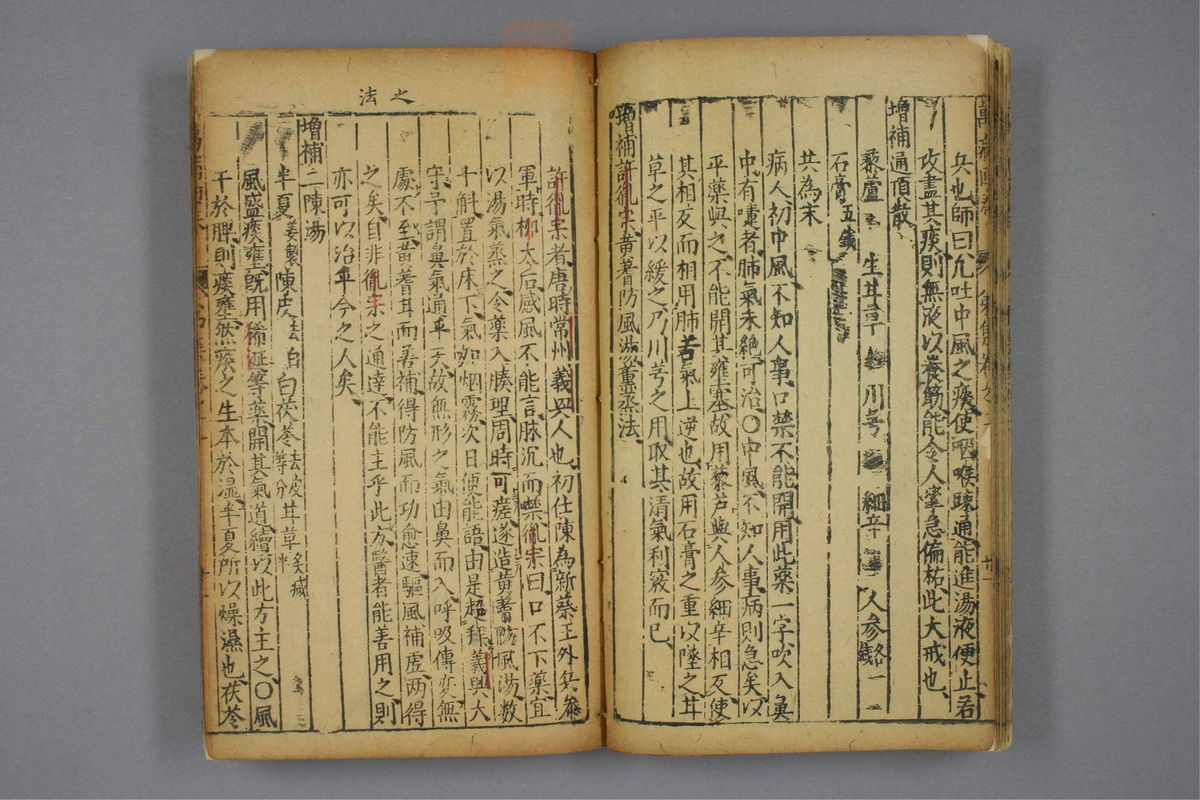 兵也師曰凡吐中風之痰使咽喉疎通能進湯液便止若
攻盡其痰則無液以養筋能令人攣急偏枯此大戒也
增補通頂散
藜蘆 生甘草 川芎 細辛 人參各一錢
石膏五錢
共為末
病人初中風不知人事口禁不能開用此藥一字吹入鼻
中有嚏者肺氣未絶可治〇中風不知人事病則急矣以
平藥與之不能開其壅塞故用藜芦與人參細辛相反使
其相反而相用肺苦氣上逆也故用石膏之重以墜之甘
草之平以緩之乃川芎之用取其清氣利竅而已
增補許胤宗黄蓍防風湯薰蒸法
之法
許胤宗者唐時常州義興人也初仕陳為新蔡王外兵參
軍時柳太后感風不能言脉沉而噤胤宗曰口不下藥宜
以湯氣蒸之令藥入腠理周時可瘥遂造黄蓍防風湯数
十斛置於床下氣如烟霧次日便能語由是超拜義興大
守予謂鼻氣通乎天故無形之氣由鼻而入呼吸傳変無
處不至黄蓍甘而善補得防風而功愈速驅風補虚两得
之矣自非胤宗之通達不能主乎此方醫者能善用之則
亦可以治乎今之人矣
增補二陳湯
半夏姜製 陳皮去白 白茯苓去皮等分 甘草炙減半
風盛痰壅既用稀涎等藥開其氣道續以此方主之〇風
干於脾則痰壅然痰之生本於湿半夏所以燥濕也茯苓